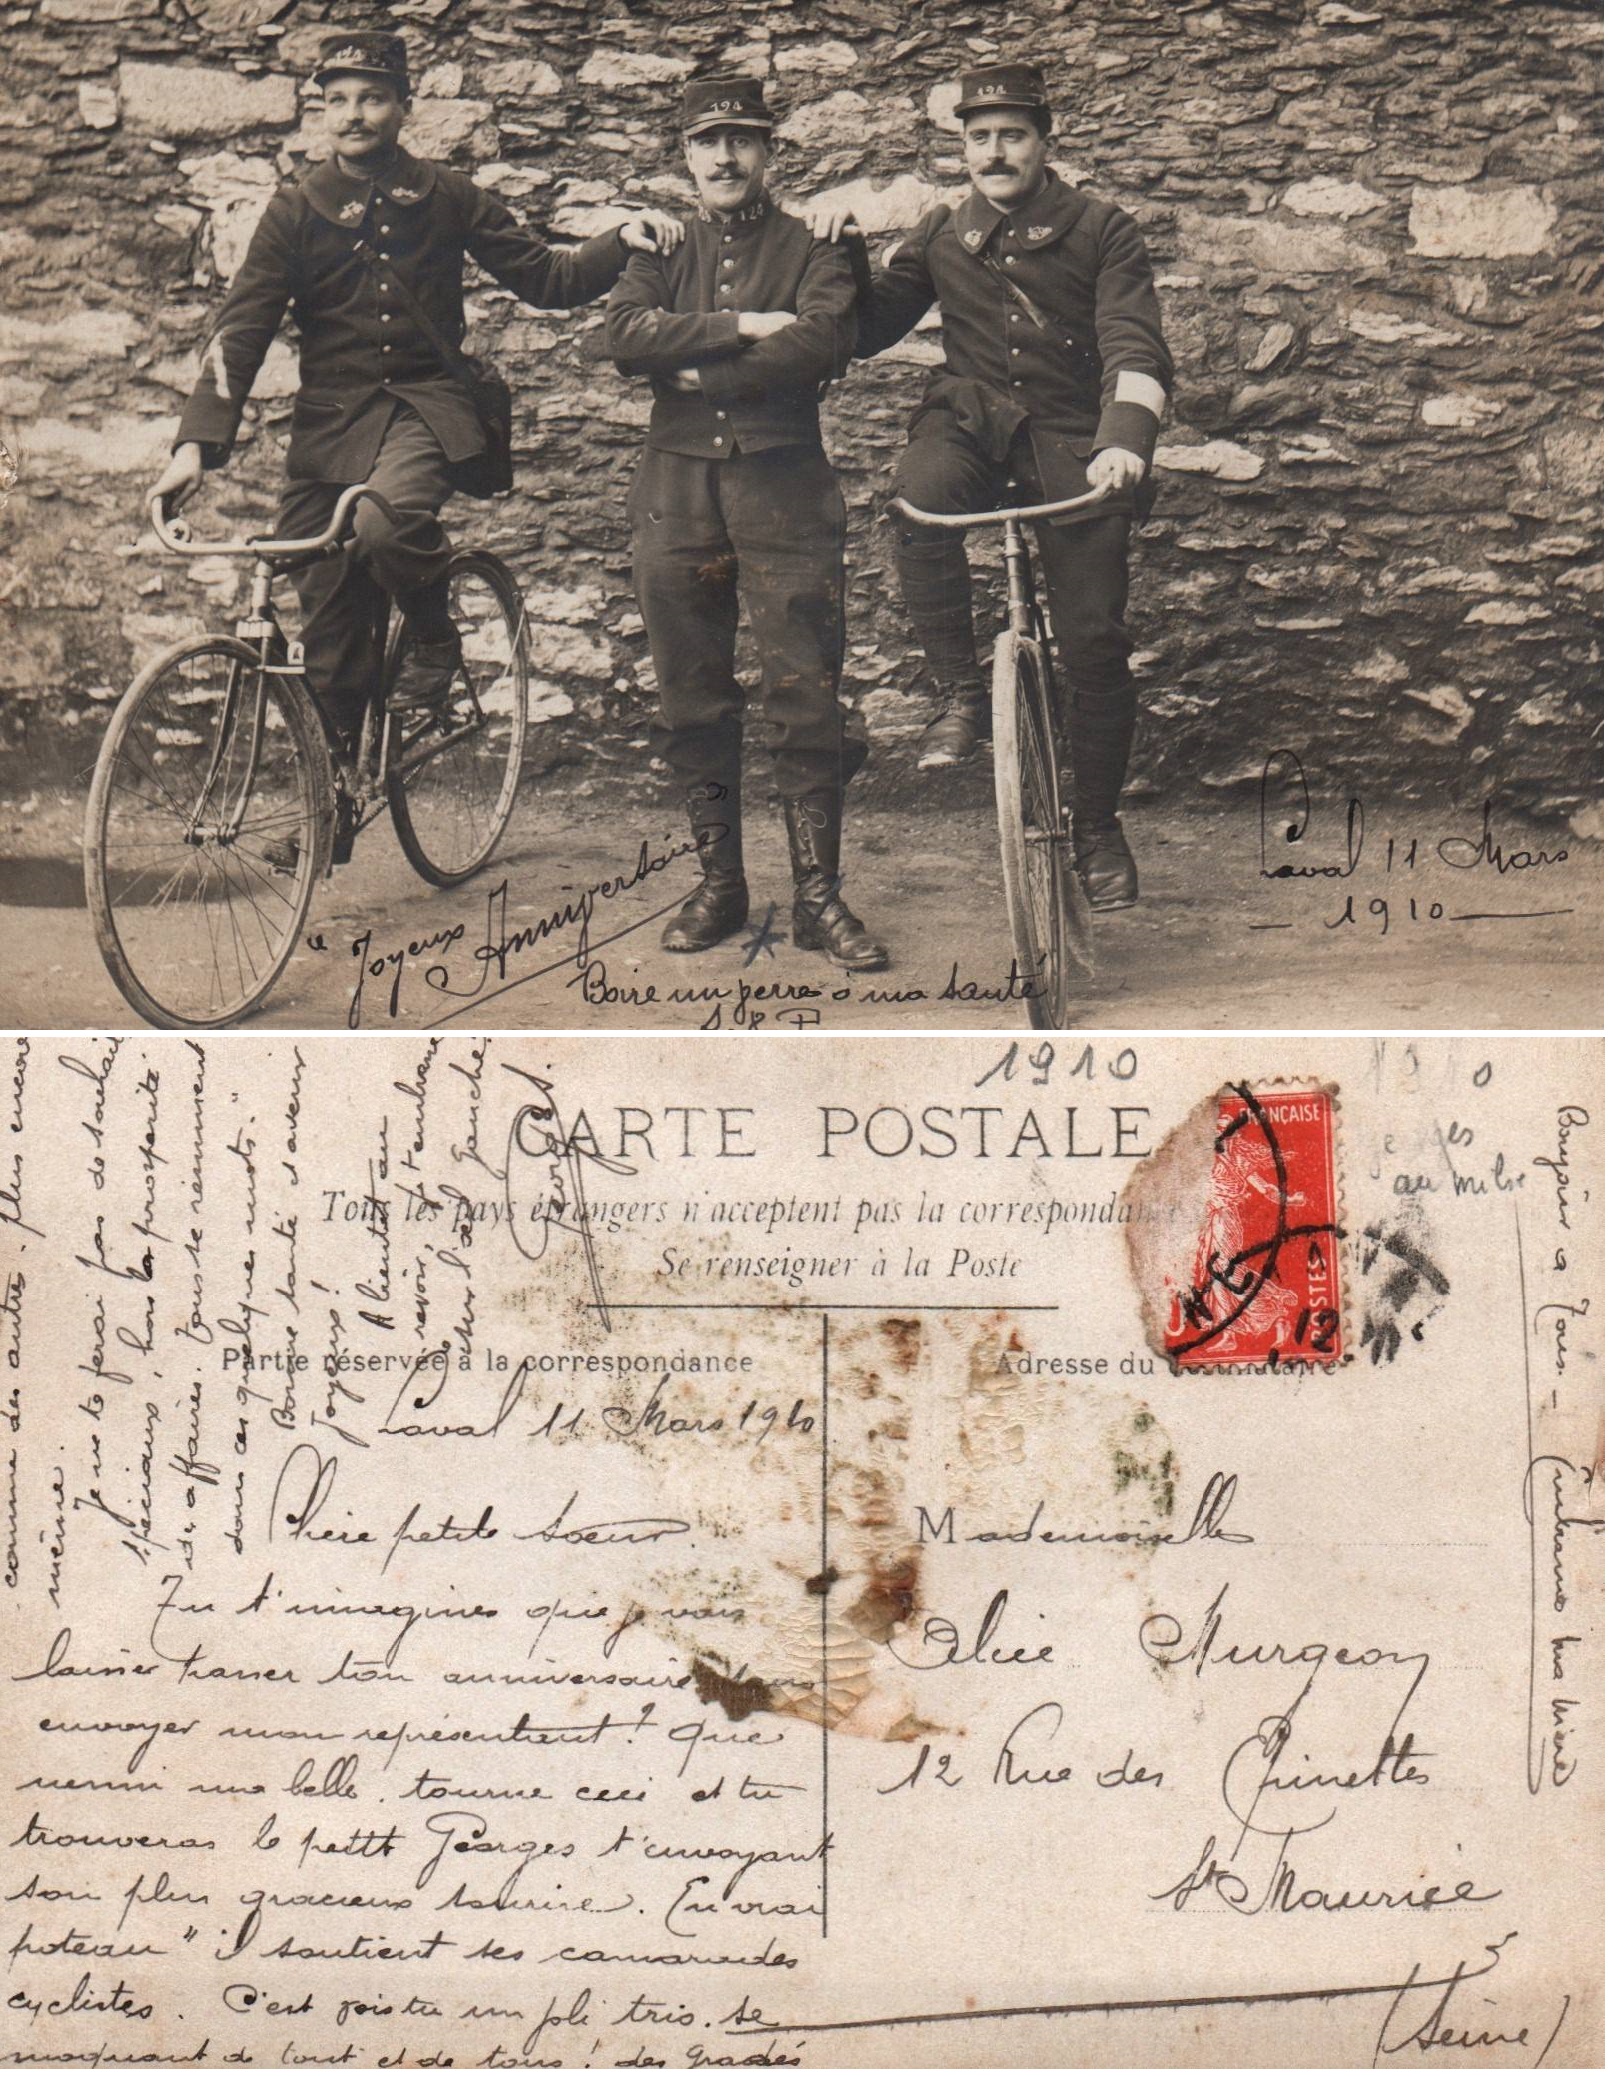 124
124
124
124
Laval 11 Mars
- 1910 -
" Joyeux Anniversaire "
Boire un verre à ma santé
S. & P.
1910
1910
Georges
au milieu
CARTE POSTALE
Tous les pays étrangers n'acceptent pas la correspondan
Se renseigner à la Poste
FRANÇAISE
POSTES
Partie réservée à la correspondance
Adresse du destinataire
Laval 11 Mars 1910
Chère petite soeur.
Tu t'imagines que je vais
laisser passer ton anniversaire sans
envoyer mon représentant? Que
nenni ma belle. tourne ceci et tu
trouveras le petit Georges t'envoyant
son plus gracieux sourire. En vrai
poteau" il soutient ses camarades
cyclistes. C'est vois tu un joli trio. se
moquant de tout et de tous! des gradés
comme des autres. plus encore
même.
Je ne te ferai pas de souhaits
spéciaux, hors la prospérité
des affaires. Tous se resument
dans ces quelques mots. "
Bonne santé et avenir
Joyeux!
A bientôt au
revoir, je t'embrasse
sur l'œil gauche.
Georges.
Mademoiselle
Alice Murgeon
12 Rue des Epinettes
St Maurice
(Seine)
Bonjour à Tous. - Embrasse ma Mère